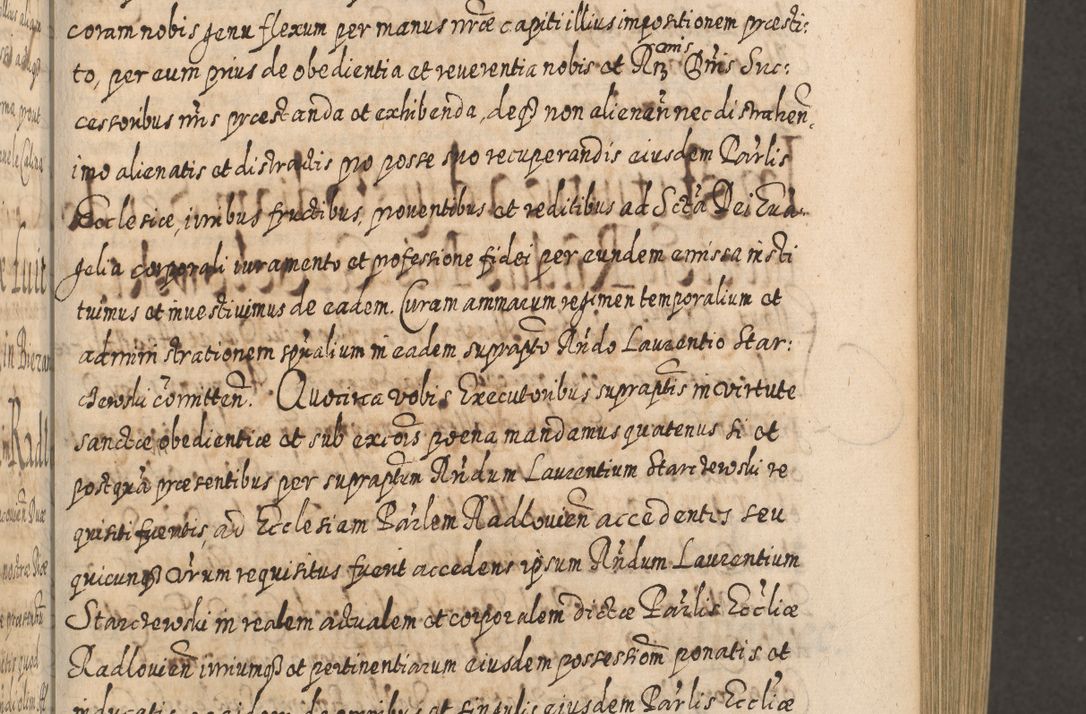 coram nobis genu flexum per manus nr̃æ capiti illius impositionem præsti:
to, per eum prius de obedientia et reverentia nobis et Rm̃is Dñis Suc:
cessoribus nr̃is præstanda et exhibenda, deq́ʒ non alienañ nec distraheñ,
imo alienatis et distractis pro posse suo recuperandis eiusdem Paro̅lis
Ecclesiæ, iuribus fructibus, proventibus et reditibus ad Sctã Dei Eua:
gelia corporali iuramento et professione fidei per eundem emissa insti
tuimus et investivimus de eadem. Curam animarum regimen temporalium et
administrationem spũalium in eadem suprapto Rñdo Laurentio Star:
chewski com̃itteñ. Quocirca vobis Executoribus supraptis in virtute
sanctæ obedientiæ et sub excõis pœna mandamus quatenus si et
postquã præsentibus per supraptum Rñdum Laurentium Starczewski re
quisiti fueritis, ad Ecclesiam Parlem Radlovieñ accedentes seu
quicunqʒ vr̃um requisitus fuerit accedens ipsum Rñdum Laurentium
Starczewski in realem actualem et corporalem dictæ Par̃lis Eccliæ
Radlovieñ iuriumqʒ et pertinentiarum eiusdem possessiom̃ ponatis et
inducatis eaidem de omnibus et singulis eiusdem Par̃lis Eccliæ